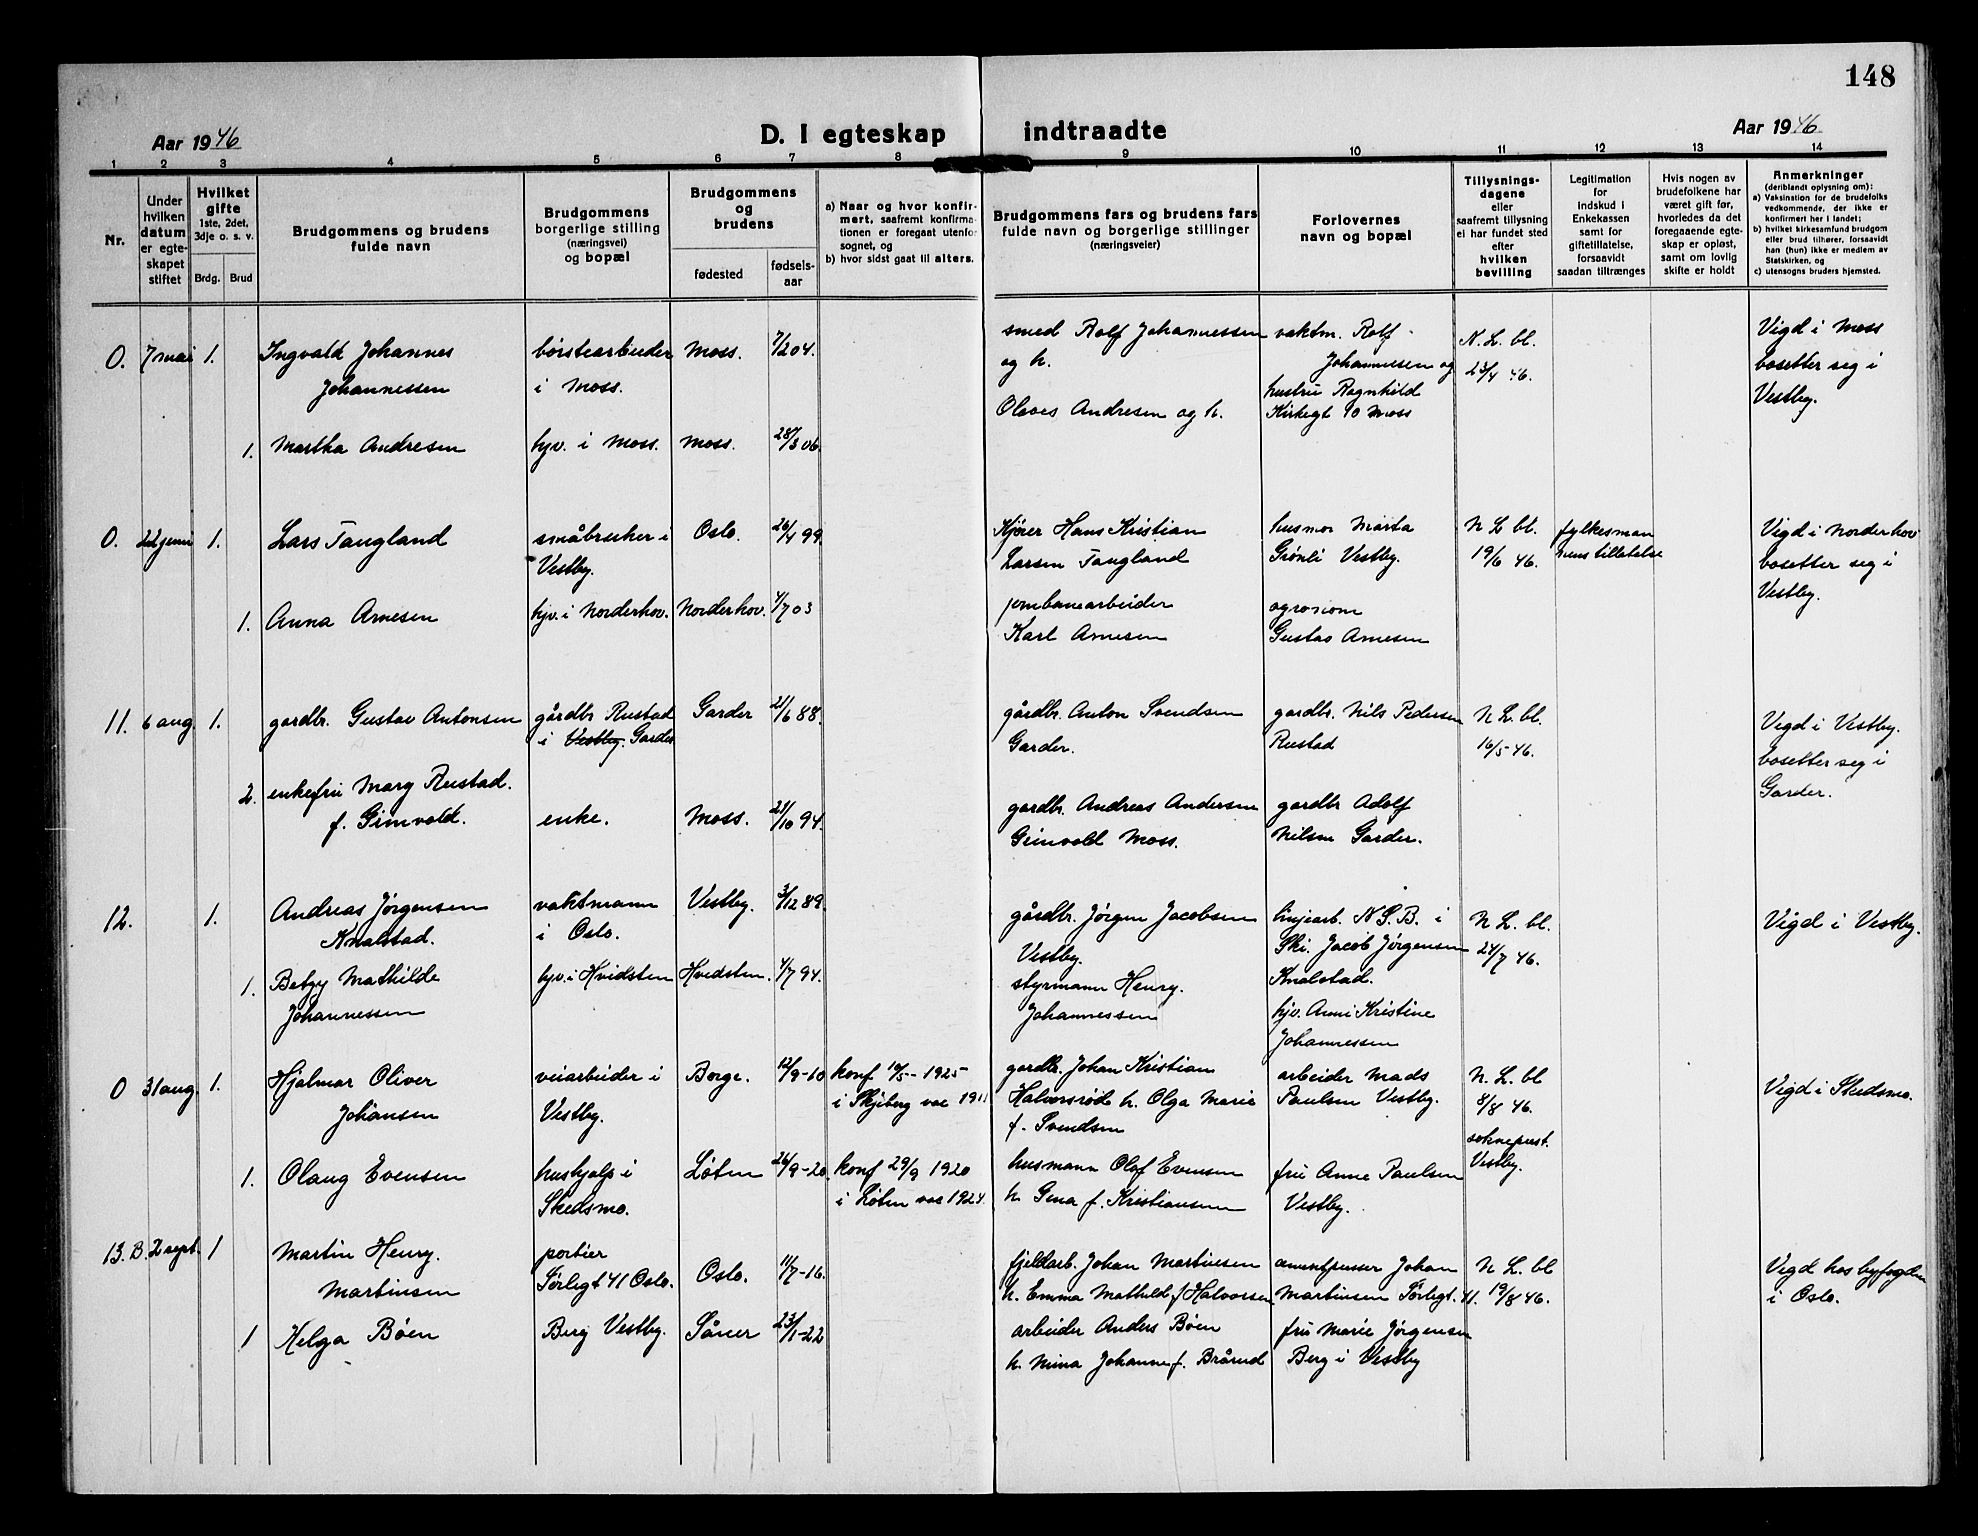 148
Aar 1946
D. I egteskap indtraadte
Aar 1946
1 2 3 4 5 6 7 8 9 10 11 12 13 14
Nr.
Under
hvilken
datum
er egte-
skapet
stiftet
Hvilket
gifte
1ste, 2det,
3dje o. s. v.
Brdg. Brud
Brudgommens og brudens
fulde navn
Brudgommens
borgerlige stilling
(næringsvei)
og bopæl
Brudgommens
og
brudens
fødested
fødsels-
aar
a) Naar og hvor konfir-
mert, saafremt konfirma-
tionen er foregaat utenfor
sognet, og
b) hvor sidst gaat til alters.
Brudgommens fars og brudens fars
fulde navn og borgerlige stillinger
(næringsveier)
Forlovernes
navn og bopæl
Tillysnings-
dagene
eller
saafremt tillysning
ei har fundet sted
efter
hvilken
bevilling
Legitimation
for
indskud i
Enkekassen
samt for
giftetillatelse,
forsaavidt
saadan tiltrænges
Hvis nogen av
brudefolkene har
været gift før,
hvorledes da det
foregaaende egte-
skap er opløst,
samt om lovlig
skifte er holdt
Anmerkninger
(deriblandt oplysning om):
a) Vaksination for de brudefolks
vedkommende, der ikke er
konfirmert her i landet;
b) hvilket kirkesamfund brudgom
eller brud tilhører, forsaavidt
han (hun) ikke er medlem av
Statskirken, og
c) utensogns bruders hjemsted.
0. 7 mai 1. Ingvald Johannes
Johannessen
børstearbeider
i Moss.
Moss. 7/2 04.
smed Rolf Johannessen
og h.
vaktm. Rolf
Johannessen og
hustru Ragnhild
Kirkegt 90 Moss
N. L. bl.
23/4 46.
Vigd i Moss
bosetter seg i
Vestby.
1. Martha Andresen
hjv. i Moss. Moss. 28/3 06.
Andresen og h.
0. 22 juni 1. Lars Tangland
småbruker i
Vestby.
Oslo. 26/4 99
Kjører Hans Kristian
Larsen Tangland
husmor Marta
Grønli Vestby.
N L bl.
19/6 46.
fylkesman
nens tillatelse
Vigd i Norderhov
bosetter seg i
Vestby.
1. Anna Arnesen
hjv. i Norderhov. Norderhov. 4/7 03
jernbanearbeider
Karl Arnesen
agronom
Gustav Arnesen
11. 6 aug 1. gardbr. Gustav Antonsen
gårdbr Rustad
i Vestby. Garder
Garder 21/6 88.
gårdbr. Anton Svendsen
Garder.
gardbr. Nils Pedersen
Rustad
N L. bl.
16/5-46.
Vigd i Vestby.
bosetter seg i
Garder.
2. enkefru Mary Rustad.
f. Gimvold.
enke. Moss. 21/10 94.
gardbr. Andreas Andersen
Gimvold Moss.
gardbr Adolf
Nilsen Garder.
12. 1. Andreas Jørgensen
Knalstad.
vaktmann
i Oslo.
Vestby. 3/12 89.
gårdbr. Jørgen Jacobsen
Vestby.
linjearb. N.S.B. i
Ski. Jacob Jørgensen
Knalstad.
N L. bl.
24/7 46.
Vigd i Vestby.
1. Betzy Mathilde
Johannessen
hjv. i Hvidsten Hvidsten. 4/7 94.
styrmann Henry.
Johannessen
hjv. Anni Kristine
Johannessen
0 31 aug. 1. Hjalmar Oliver
Johansen
veiarbeider i
Vestby.
Borge. 12/9-10
konf 19/5-1925-
i Skjeberg vac 1911
gardbr. Johan Kristian
Halvorsrød h. Olga Marie
f. Svendsen
arbeider Mads
Paulsen Vestby.
N. L. bl
8/8 46.
sokneprest.
Vestby.
Vigd i Skedsmo.
1. Olaug Evensen
hushjelp i
Skedsmo.
Løten 26/9-20.
konf 29/9 1920
i Løten vac 1924.
husmann Olaf Evensen
h. Gena f. Kristiansen
fru Anne Paulsen
Vestby.
13. B. 2 sept. 1 Martin Henry.
Martinsen
portier
Sørligt 41 Oslo.
Oslo. 11/7-16.
fjeldarb. Johan Martinsen
h. Emma Mathild f Halvorsen
Johan
Martinsen Sørligt. 41.
N L. bl
19/8 46.
Vigd hos byfogden
i Oslo.
1 Helga Bøen
Berg Vestby. Såner 23/1-22
arbeider Anders Bøen
h. Nina Johanne f. Brårud
fru Marie Jørgensen
Berg i Vestby